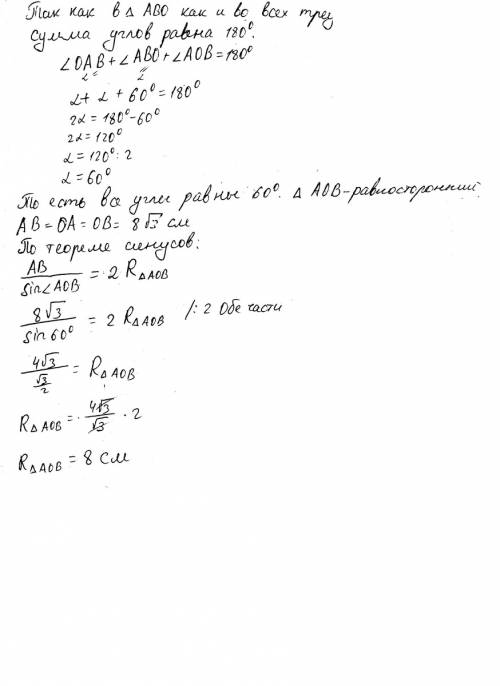 Так как в △ ABO как и во всех треу
сумма углов равна 180°.
∠OAB + ∠ABO + ∠AOB = 180°
α α
α + α + 60° = 180°
2α = 180° - 60°
2α = 120°
α = 120° : 2
α = 60°
То есть все углы равны 60°. △ AOB - равносторонний.
AB = OA = OB = 8√3 см
По теореме синусов:
AB / sin∠AOB = 2 R△AOB
8√3 / sin 60° = 2 R△AOB /: 2 Обе части
4√3 / (√3/2) = R△AOB
R△AOB = 4√3 / √3 · 2
R△AOB = 8 см